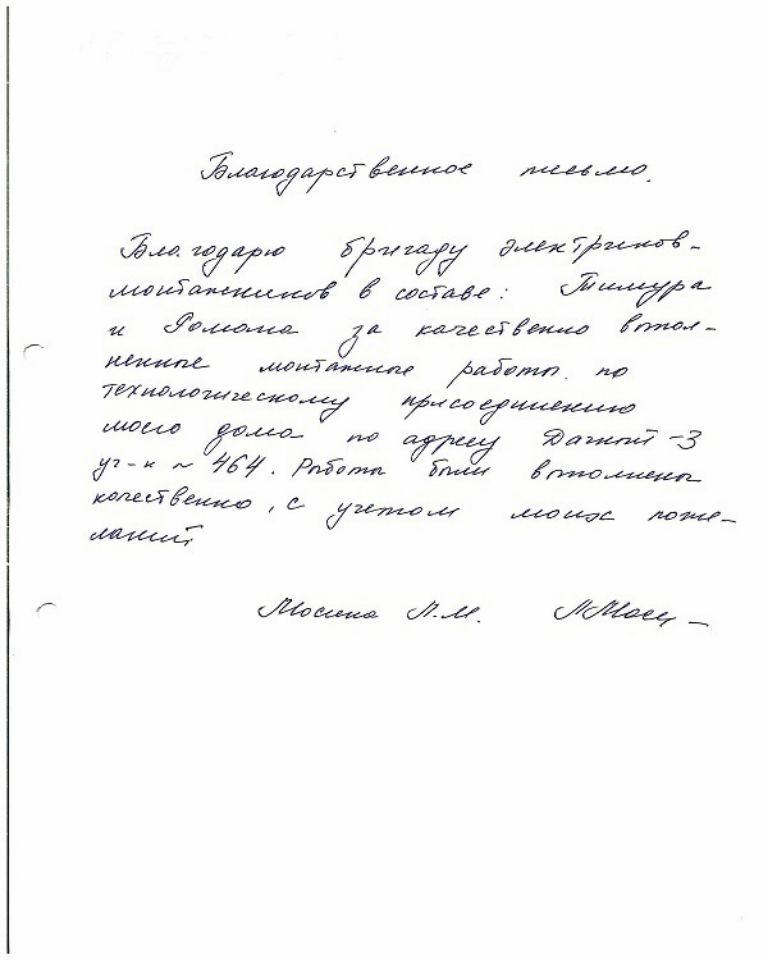 Благодарственное письмо.
Благодарю бригаду электриков-
монтажников в составе: Тимура
и Романа за качественно выпол-
ненные монтажные работы по
технологическому присоединению
моего дома по адресу Дачный-3
уч-к N 464. Работы были выполнены
качественно, с учетом моих поже-
ланий
Мосина Л.М.